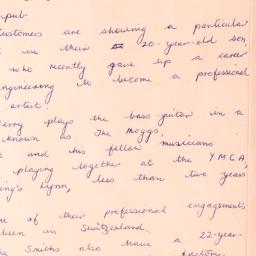 pub
customers are showing a particular
in their 20-year-old son,
who recently gave up a career
engineering to become a professional
artist.
erry plays the bass guitar in a
known as The Moggs.
and his fellow musicians
playing together at the Y.M.C.A,
ing's Lynn, less than two years
e of their professional engagements
been in Switzerland.
e Smiths also have a 22-year-
factory